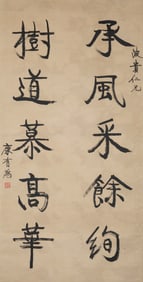 波貴仁兄
承風采餘絢
樹道慕高華
康有為